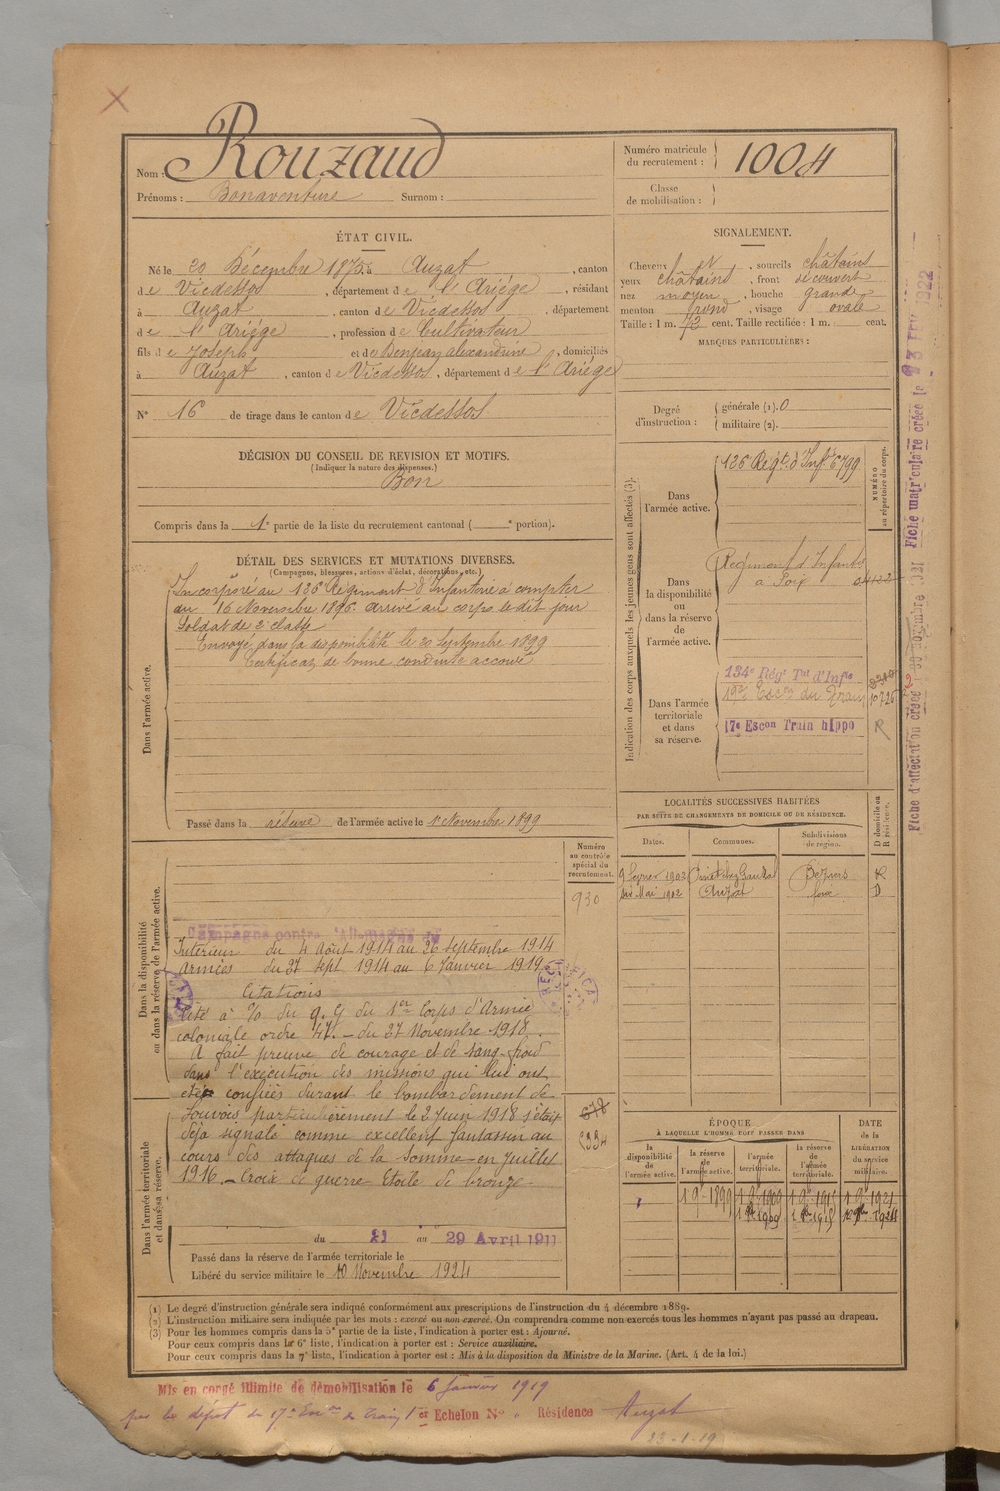 Nom : Rouzaud
Prénoms : Bonaventure Surnom :
Numéro matricule du recrutement : 1004
Classe de mobilisation :
ÉTAT CIVIL.
Né le 20 Décembre 1875 à Auzat, canton
de Vicdessos, département de l'Ariége, résidant
à Auzat, canton de Vicdessos, département
de l'Ariége, profession de Cultivateur
fils de Joseph et de Benjean Alexandrine, domiciliés
à Auzat, canton de Vicdessos, département de l'Ariége
N° 16 de tirage dans le canton de Vicdessos
SIGNALEMENT.
Cheveux et, sourcils châtains
yeux châtains, front découvert
nez moyen, bouche grande
menton rond, visage ovale
Taille : 1 m. 72 cent. Taille rectifiée : 1 m. cent.
MARQUES PARTICULIÈRES :
Degré d'instruction : générale (1). 0
militaire (2).
DÉCISION DU CONSEIL DE REVISION ET MOTIFS.
(Indiquer la nature des dispenses.)
Bon
Compris dans la 1e partie de la liste du recrutement cantonal ( e portion).
DÉTAIL DES SERVICES ET MUTATIONS DIVERSES.
(Campagnes, blessures, actions d'éclat, décorations, etc.)
Dans l'armée active.
Incorporé au 126e Régiment d'Infanterie à compter
du 16 Novembre 1896. Arrivé au corps le dit jour
Soldat de 2e classe
Envoyé dans la disponibilité le 20 Septembre 1899
Certificat de bonne conduite accordé
Passé dans la réserve de l'armée active le 1er Novembre 1899
Indication des corps auxquels les jeunes gens sont affectés (3).
NUMÉRO au répertoire du corps.
Dans l'armée active.
126 Régt. d'Infie 6799
Dans la disponibilité ou dans la réserve de l'armée active.
Régiment d'Infanterie
à Foix
Dans l'armée territoriale et dans sa réserve.
134e Régt Tal d'Infie
17e Escon du Train 10726
17e Escon Train hippo R
LOCALITÉS SUCCESSIVES HABITÉES
PAR SUITE DE CHANGEMENTS DE DOMICILE OU DE RÉSIDENCE.
Dates. Communes. Subdivisions de région. D domicile ou R résidence.
9 février 1902 Béziers R
Mai 1902 Auzat Foix D
Dans la disponibilité ou dans la réserve de l'armée active.
Numéro au contrôle spécial du recrutement.
930
Campagne contre l'Allemagne
Intérieur du 4 Août 1914 au 26 Septembre 1914
Armées du 27 Sept 1914 au 6 Janvier 1919
Citations
Cité à l'o du q. g du 1er Corps d'Armée
coloniale ordre 47. - du 27 Novembre 1918.
A fait preuve de courage et de sang-froid
dans l'exécution des missions qui lui ont
été confiées durant le bombardement de
Louvois particulièrement le 2 Juin 1918 s'était
déjà signalé comme excellent fantassin au
cours des attaques de la Somme en Juillet
1916. - Croix de guerre Etoile de bronze-
Dans l'armée territoriale et dans sa réserve.
du 21 au 29 Avril 1911
Passé dans la réserve de l'armée territoriale le
Libéré du service militaire le 10 Novembre 1924
ÉPOQUE
À LAQUELLE L'HOMME DOIT PASSER DANS
DATE de la LIBÉRATION du service militaire.
la disponibilité de l'armée active. la réserve de l'armée active. l'armée territoriale. la réserve de l'armée territoriale.
1 9 1899 1 9 1909 1 9 1915 1 9 1921
(1) Le degré d'instruction générale sera indiqué conformément aux prescriptions de l'instruction du 4 décembre 1889.
(2) L'instruction militaire sera indiquée par les mots : exercé ou non exercé. On comprendra comme non exercés tous les hommes n'ayant pas passé au drapeau.
(3) Pour les hommes compris dans la 5e partie de la liste, l'indication à porter est : Ajourné.
Pour ceux compris dans la 6e liste, l'indication à porter est : Service auxiliaire.
Pour ceux compris dans la 7e liste, l'indication à porter est : Mis à la disposition du Ministre de la Marine. (Art. 4 de la loi.)
Mis en congé illimité de démobilisation le 6 Janvier 1919
par le dépôt du 17e Escon du Train 1er Echelon N° Résidence Auzat
23-1-19
Fiche matriculaire créée le 23 FEV 1922